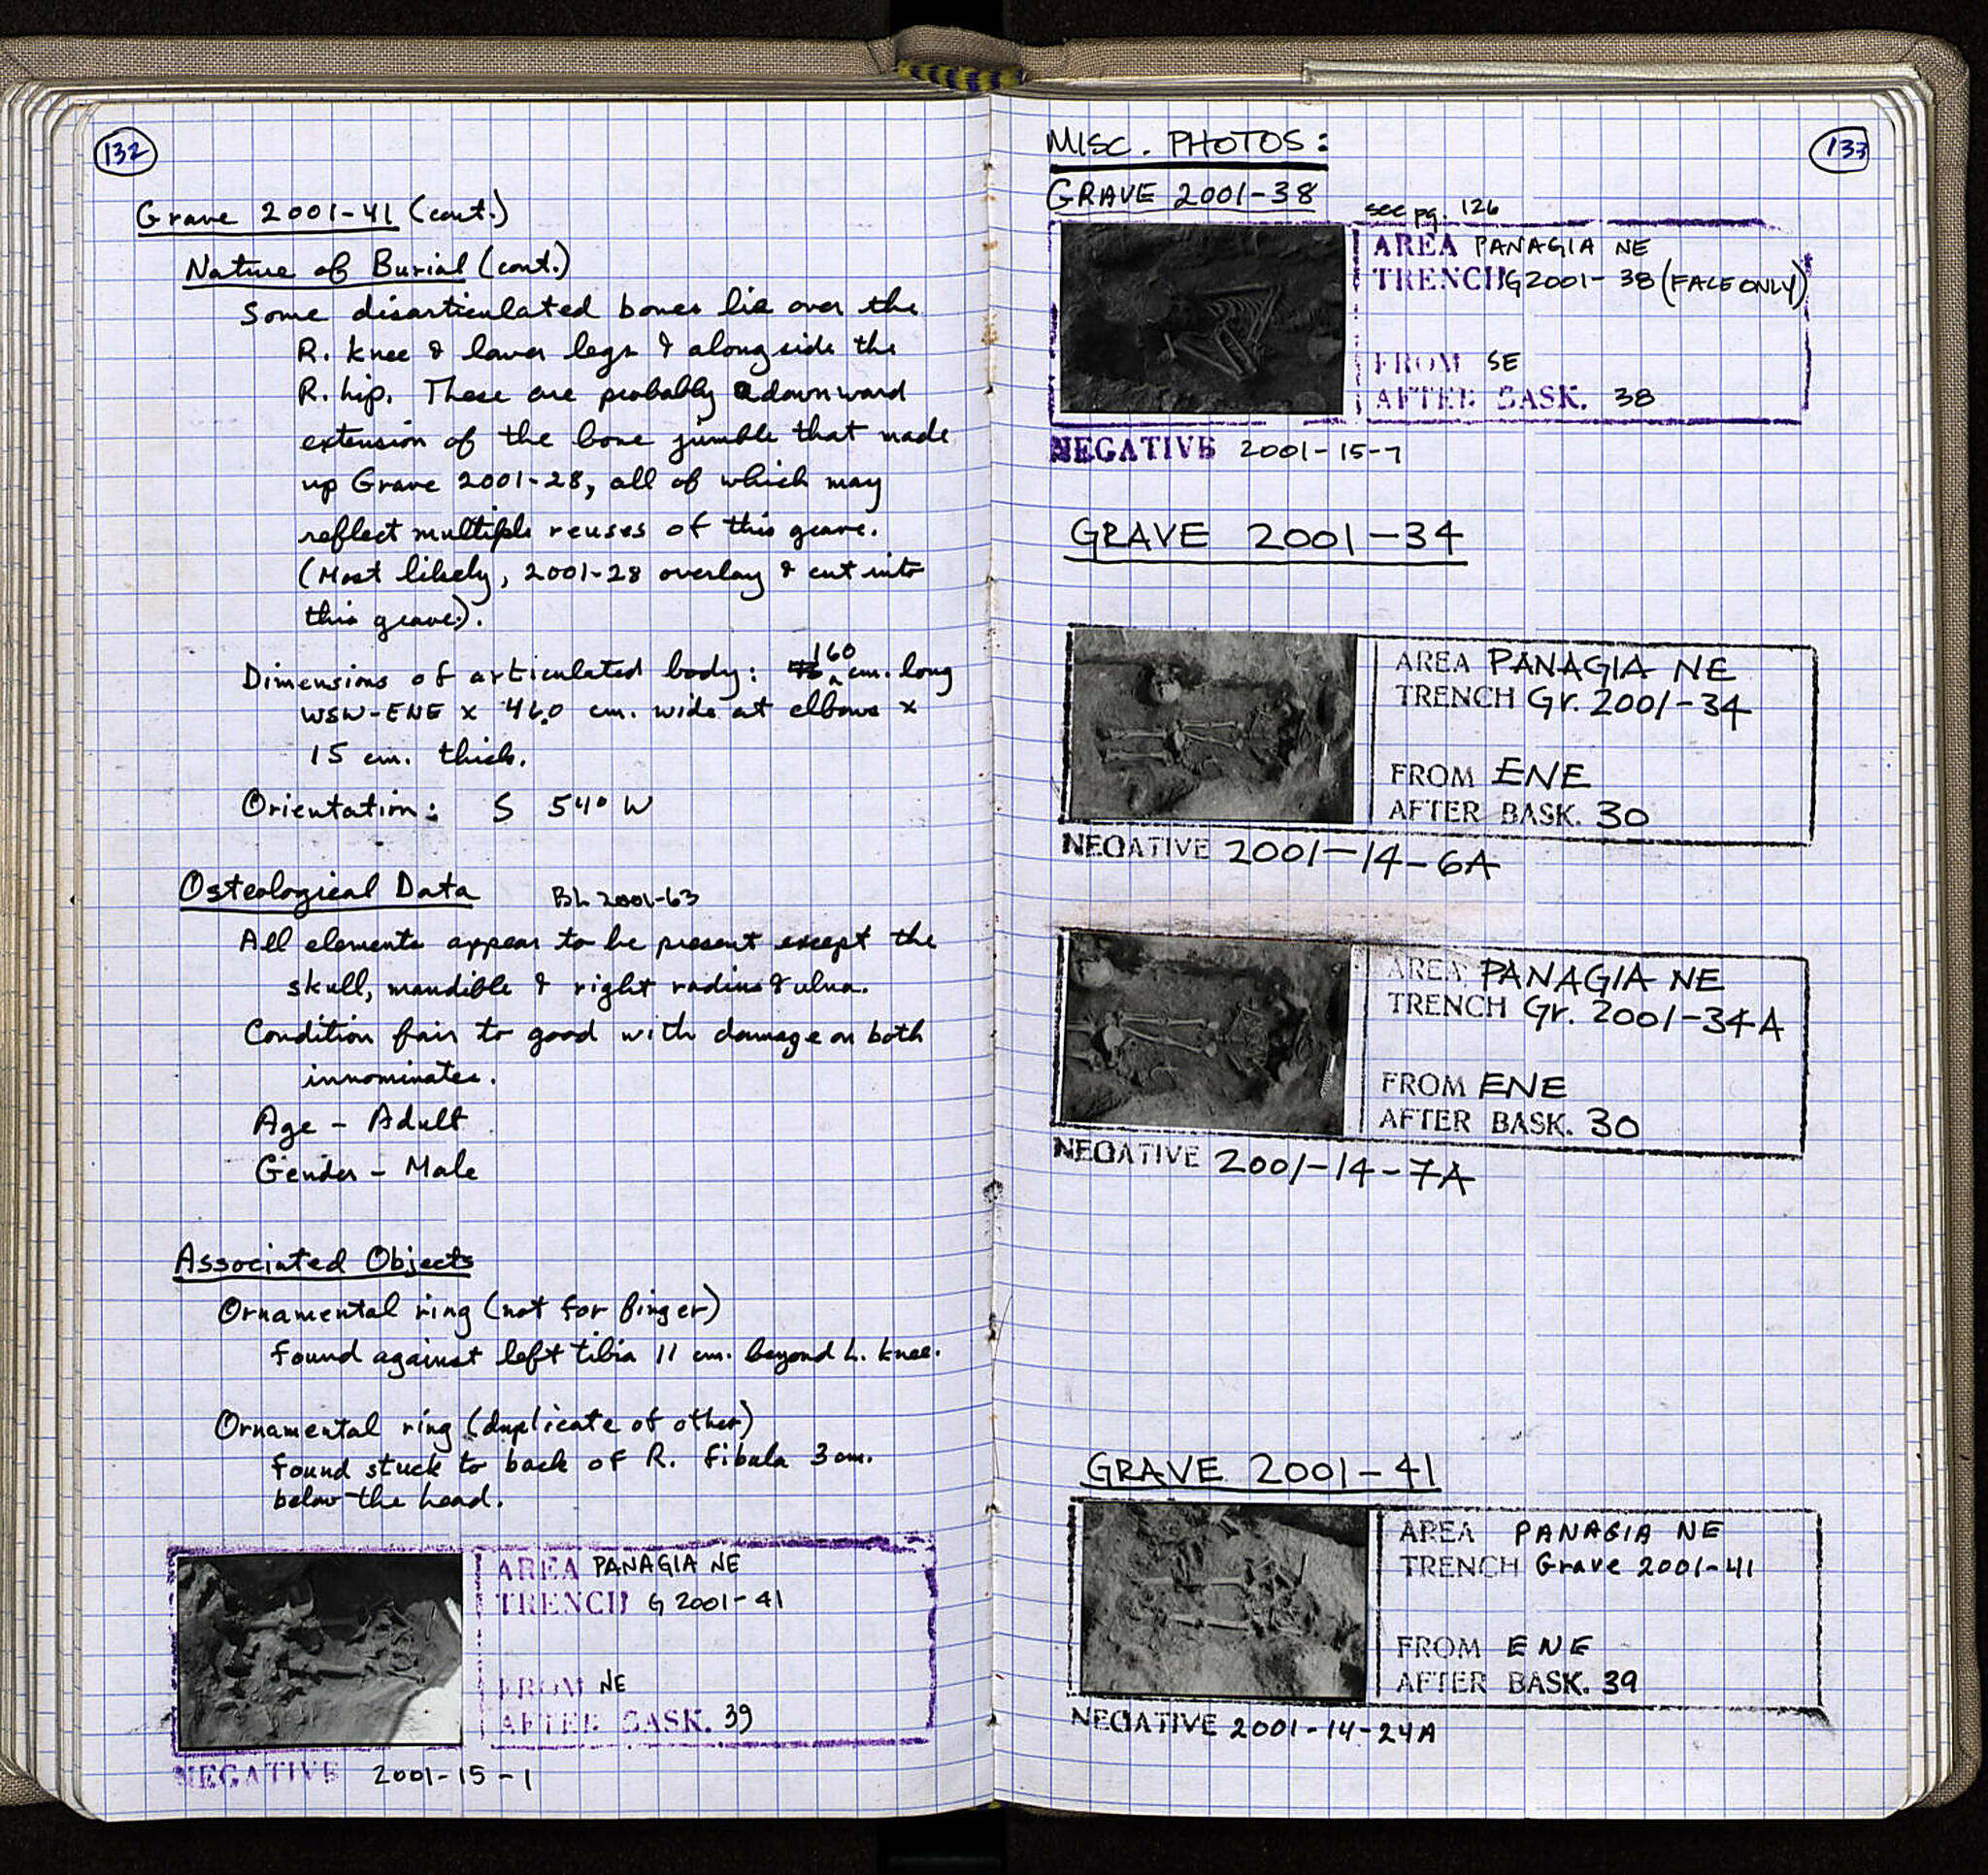 132
Grave 2001-41 (cont.)
Nature of Burial (cont.)
Some disarticulated bones lie over the
R. knee & lower legs & alongside the
R. hip. These are probably a downward
extension of the bone jumble that made
up Grave 2001-28, all of which may
reflect multiple reuses of this grave.
(Most likely, 2001-28 overlay & cut into
this grave).
Dimensions of articulated body: 160 cm. long
WSW-ENE x 46.0 cm. wide at elbows x
15 cm. thick.
Orientation: S 54° W
Osteological Data BL 2001-63
All elements appear to be present except the
skull, mandible & right radius & ulna.
Condition fair to good with damage on both
innominates.
Age - Adult
Gender - Male
Associated Objects
Ornamental ring (not for finger)
found against left tibia 11 cm. beyond L. knee.
Ornamental ring (duplicate of other)
found stuck to back of R. fibula 3 cm.
below the head.
AREA PANAGIA NE
TRENCH G 2001-41
FROM NE
AFTER BASK. 39
NEGATIVE 2001-15-1
133
MISC. PHOTOS:
GRAVE 2001-38
see pg. 126
AREA PANAGIA NE
TRENCH G2001-38 (FACE ONLY)
FROM SE
AFTER BASK. 38
NEGATIVE 2001-15-7
GRAVE 2001-34
AREA PANAGIA NE
TRENCH Gr. 2001-34
FROM ENE
AFTER BASK. 30
NEGATIVE 2001-14-6A
AREA PANAGIA NE
TRENCH Gr. 2001-34A
FROM ENE
AFTER BASK. 30
NEGATIVE 2001-14-7A
GRAVE 2001-41
AREA PANAGIA NE
TRENCH Grave 2001-41
FROM ENE
AFTER BASK. 39
NEGATIVE 2001-14-24A